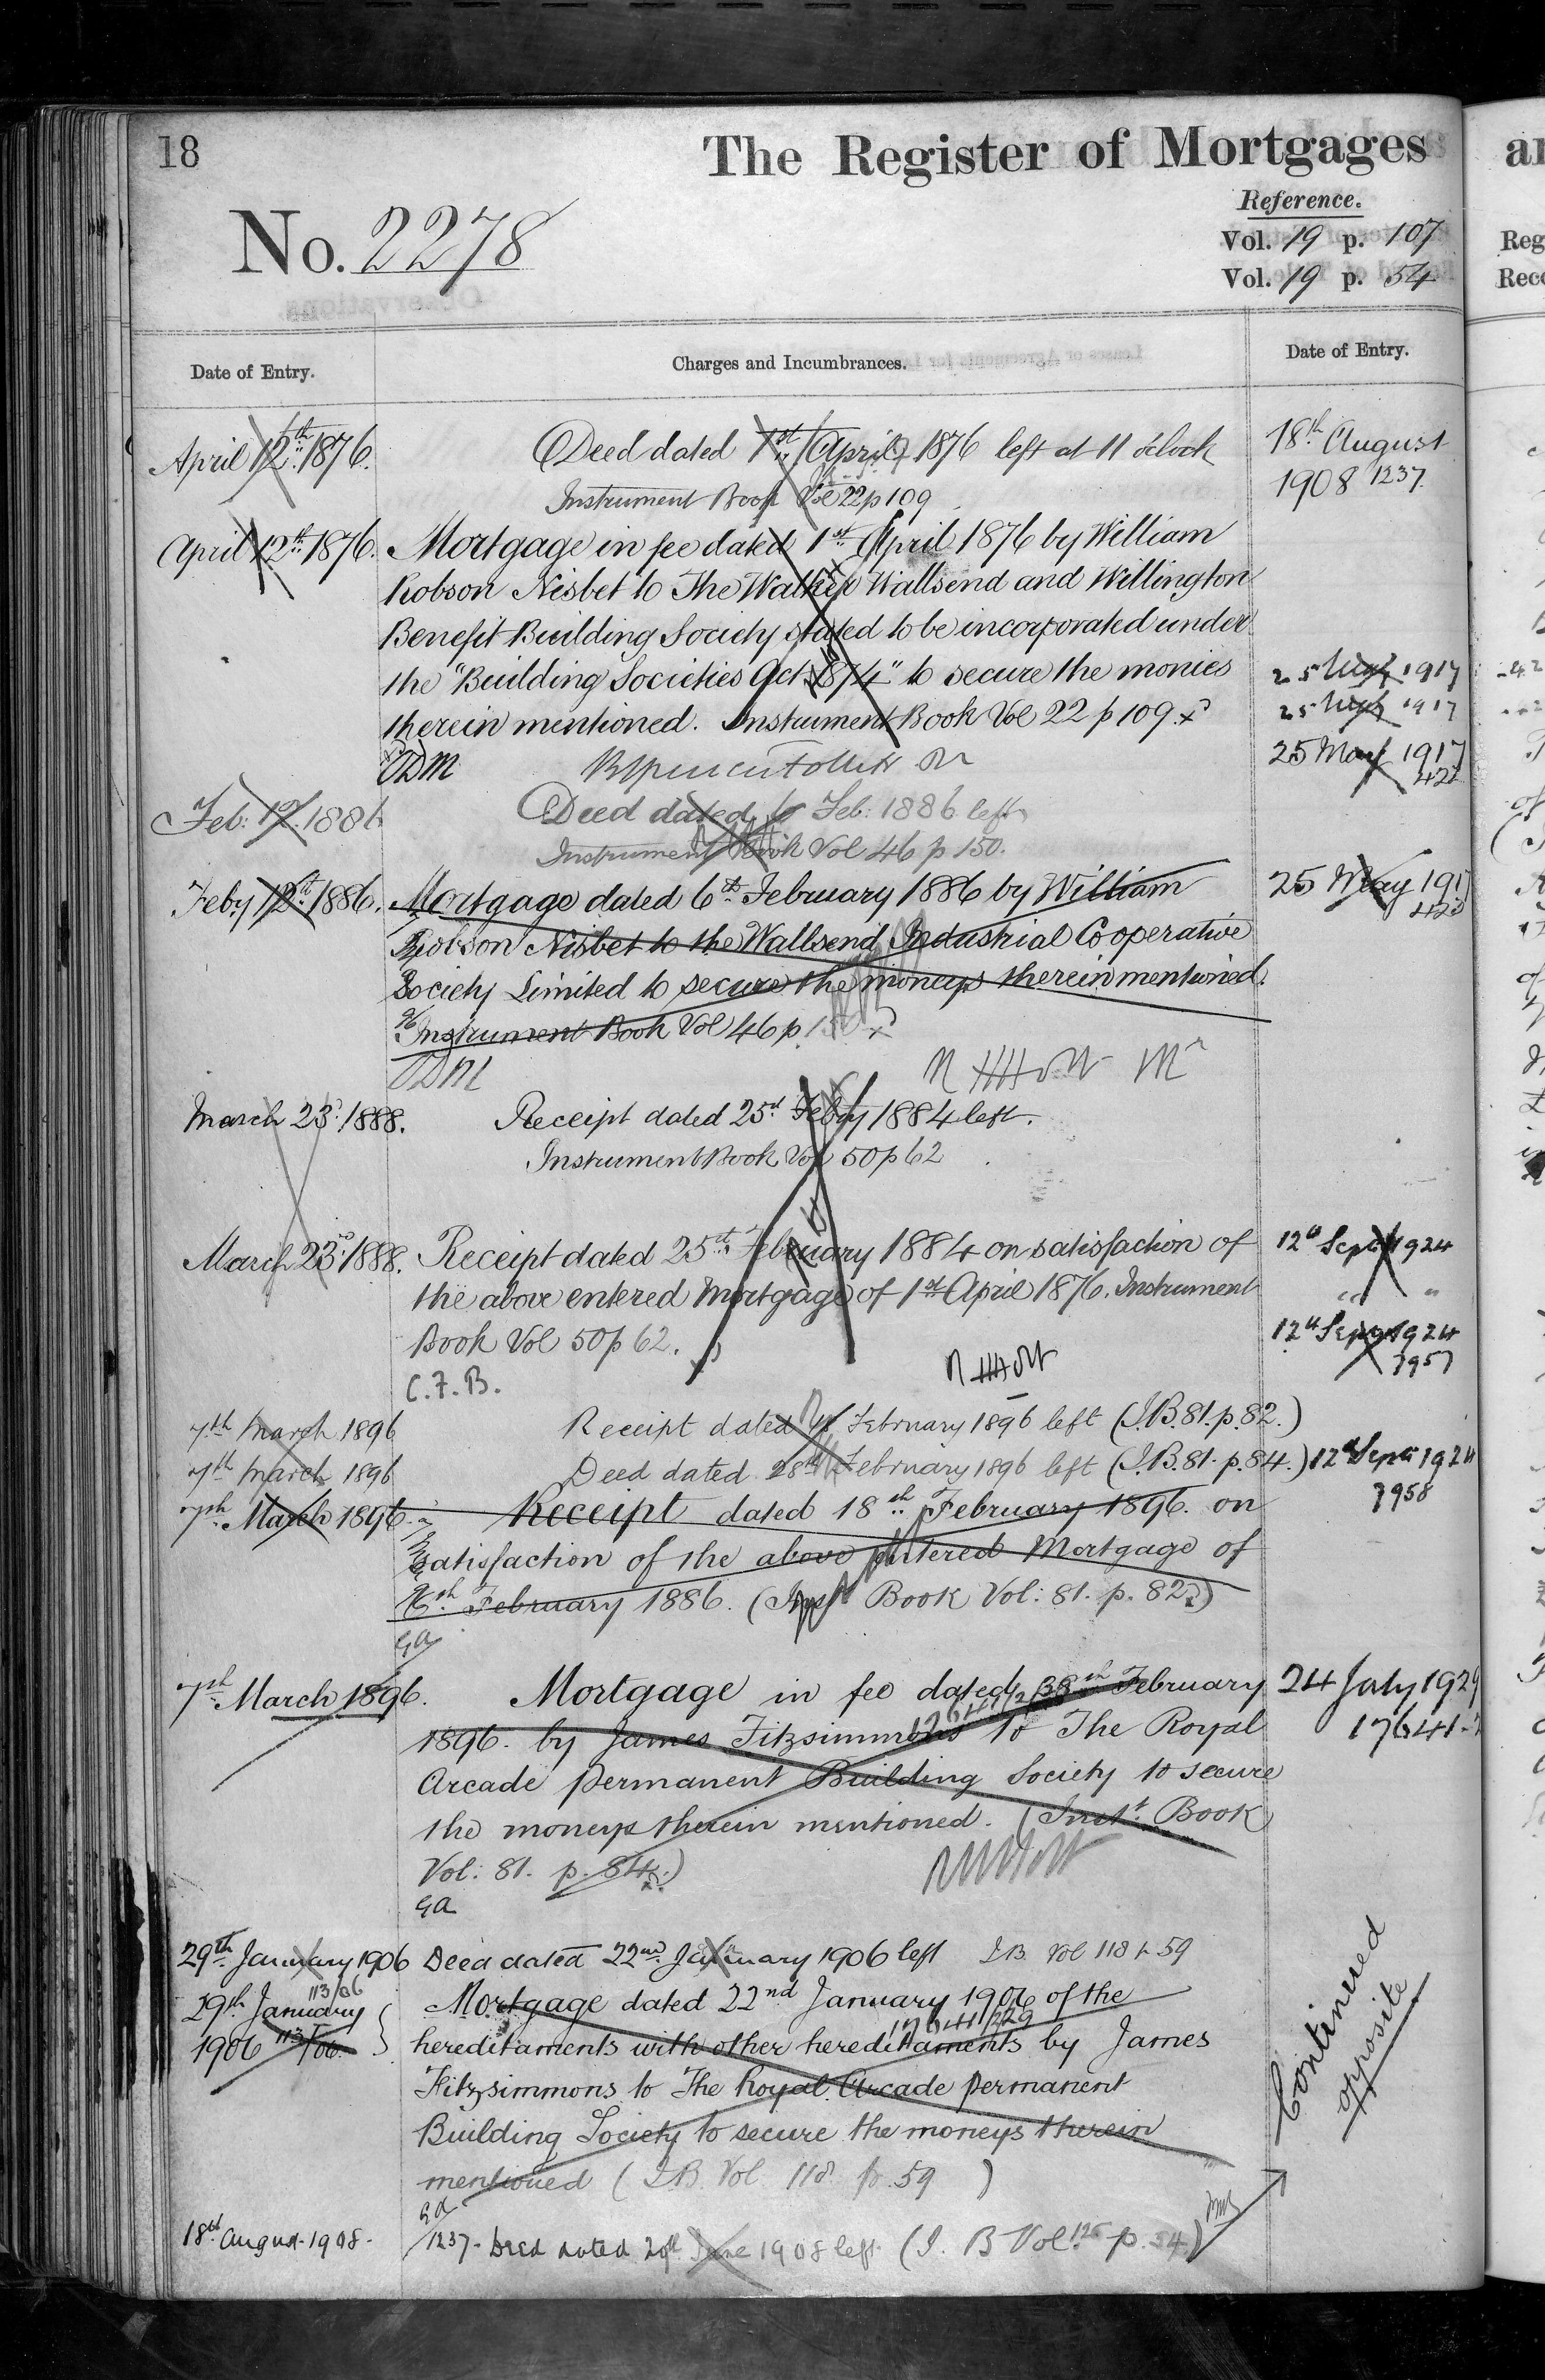 18
The Register of Mortgages
Reference.
No. 2278
Vol. 19 p. 107
Vol. 19 p. 54
Date of Entry.
Charges and Incumbrances.
Date of Entry.
April 12th 1876.
Deed dated 1st April 1876 left at 11 oclock
18th August
1908 1237
Instrument Book Vol 22 p 109
April 12th 1876.
Mortgage in fee dated 1st April 1876 by William
Robson Nisbet to The Walker Wallsend and Willington
Benefit Building Society stated to be incorporated under
the "Building Societies Act 1874" to secure the monies
25 May 1917
therein mentioned. Instrument Book Vol 22 p 109.
25 May 1917
25 May 1917
422
Feb: 12. 1886
Deed dated 6 Feb: 1886 left
Instrument Book Vol 46 p 150.
Feby 12th 1886.
Mortgage dated 6th February 1886 by William
25 May 1917
423
Robson Nisbet to the Wallsend Industrial Cooperative
Society Limited to secure the moneys therein mentioned.
Instrument Book Vol 46 p 150
March 23d. 1888.
Receipt dated 25th Feby 1884 left.
Instrument Book Vol 50 p 62
March 23rd 1888.
Receipt dated 25th February 1884 on satisfaction of
12th Sept 1924
the above entered Mortgage of 1st April 1876. Instrument
" "
Book Vol 50 p 62.
12th Sept 1924
7957
C.F.B.
7th March 1896
Receipt dated February 1896 left (I.B. 81. p. 82.)
7th March 1896
Deed dated 28th February 1896 left (I.B. 81. p. 84.)
12th Sept 1924
7958
7th March 1896.
Receipt dated 18th February 1896. on
satisfaction of the above entered Mortgage of
6th February 1886. (Inst Book Vol: 81. p. 82.)
GA
7th March 1896.
Mortgage in fee dated 28th February
24 July 1929
17641
1896. by James Fitzsimmons to The Royal
Arcade Permanent Building Society to secure
the moneys therein mentioned. (Inst. Book
Vol: 81. p. 84.)
GA
29th January 1906
Deed dated 22nd January 1906 left I.B. Vol 118 p 59
113/06
29th January
1906 113/06
Mortgage dated 22nd January 1906 of the
hereditaments with other hereditaments by James
Fitzsimmons to The Royal Arcade Permanent
Building Society to secure the moneys therein
mentioned (I.B. Vol 118 p. 59 )
GA
18th August 1908.
1237. Deed dated 20th June 1908 left (I. B Vol. 125 p. 54.)
Continued
opposite